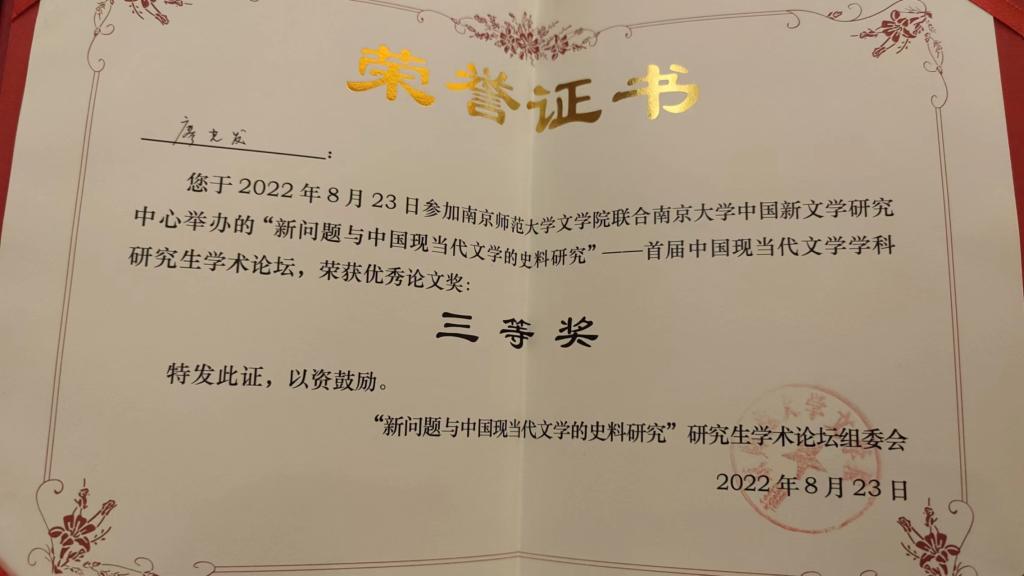 荣誉证书
廖光发:
您于2022年8月23日参加南京师范大学文学院联合南京大学中国新文学研究
中心举办的“新问题与中国现当代文学的史料研究”——首届中国现当代文学学科
研究生学术论坛，荣获优秀论文奖：
三等奖
特发此证，以资鼓励。
“新问题与中国现当代文学的史料研究”研究生学术论坛组委会
2022年8月23日